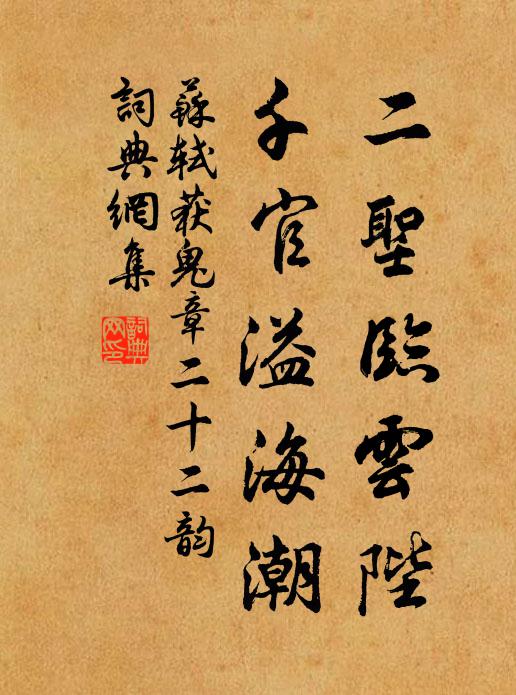 二聖臨雲陛
千官溢海潮
蘇軾获鬼章二十二韵
詞典網集
詞典網印